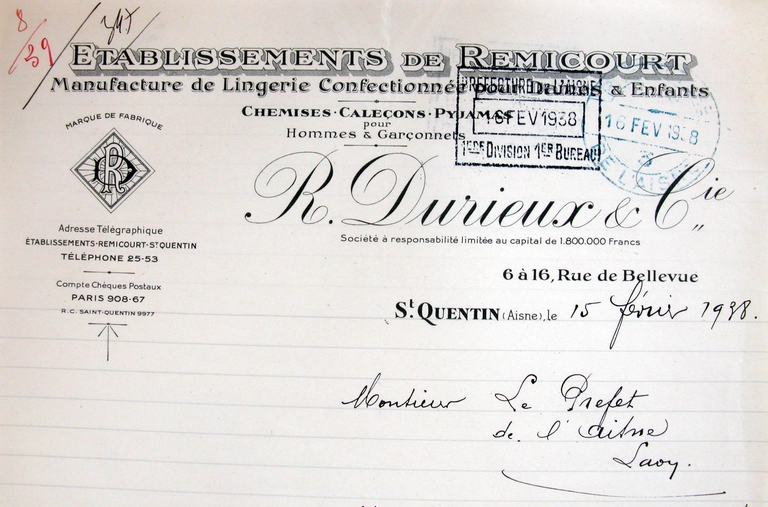 8
39
ETABLISSEMENTS DE REMICOURT
Manufacture de Lingerie Confectionnée pour Dames & Enfants
CHEMISES · CALEÇONS · PYJAMAS
pour
Hommes & Garçonnets
PRÉFECTURE DE L'AISNE
16 FEV 1938
1ère DIVISION 1er BUREAU
16 FEV 1938
DE L'AISNE
MARQUE DE FABRIQUE
DR
R. Durieux & Cie
Société à responsabilité limitée au capital de 1.800.000 Francs
Adresse Télégraphique
ÉTABLISSEMENTS-REMICOURT-ST QUENTIN
TÉLÉPHONE 25-53
Compte Chèques Postaux
PARIS 908-67
R.C. SAINT-QUENTIN 9977
6 à 16, Rue de Bellevue
St. QUENTIN (Aisne), le 15 février 1938.
Monsieur Le Prefet
de l'Aisne
Laon.